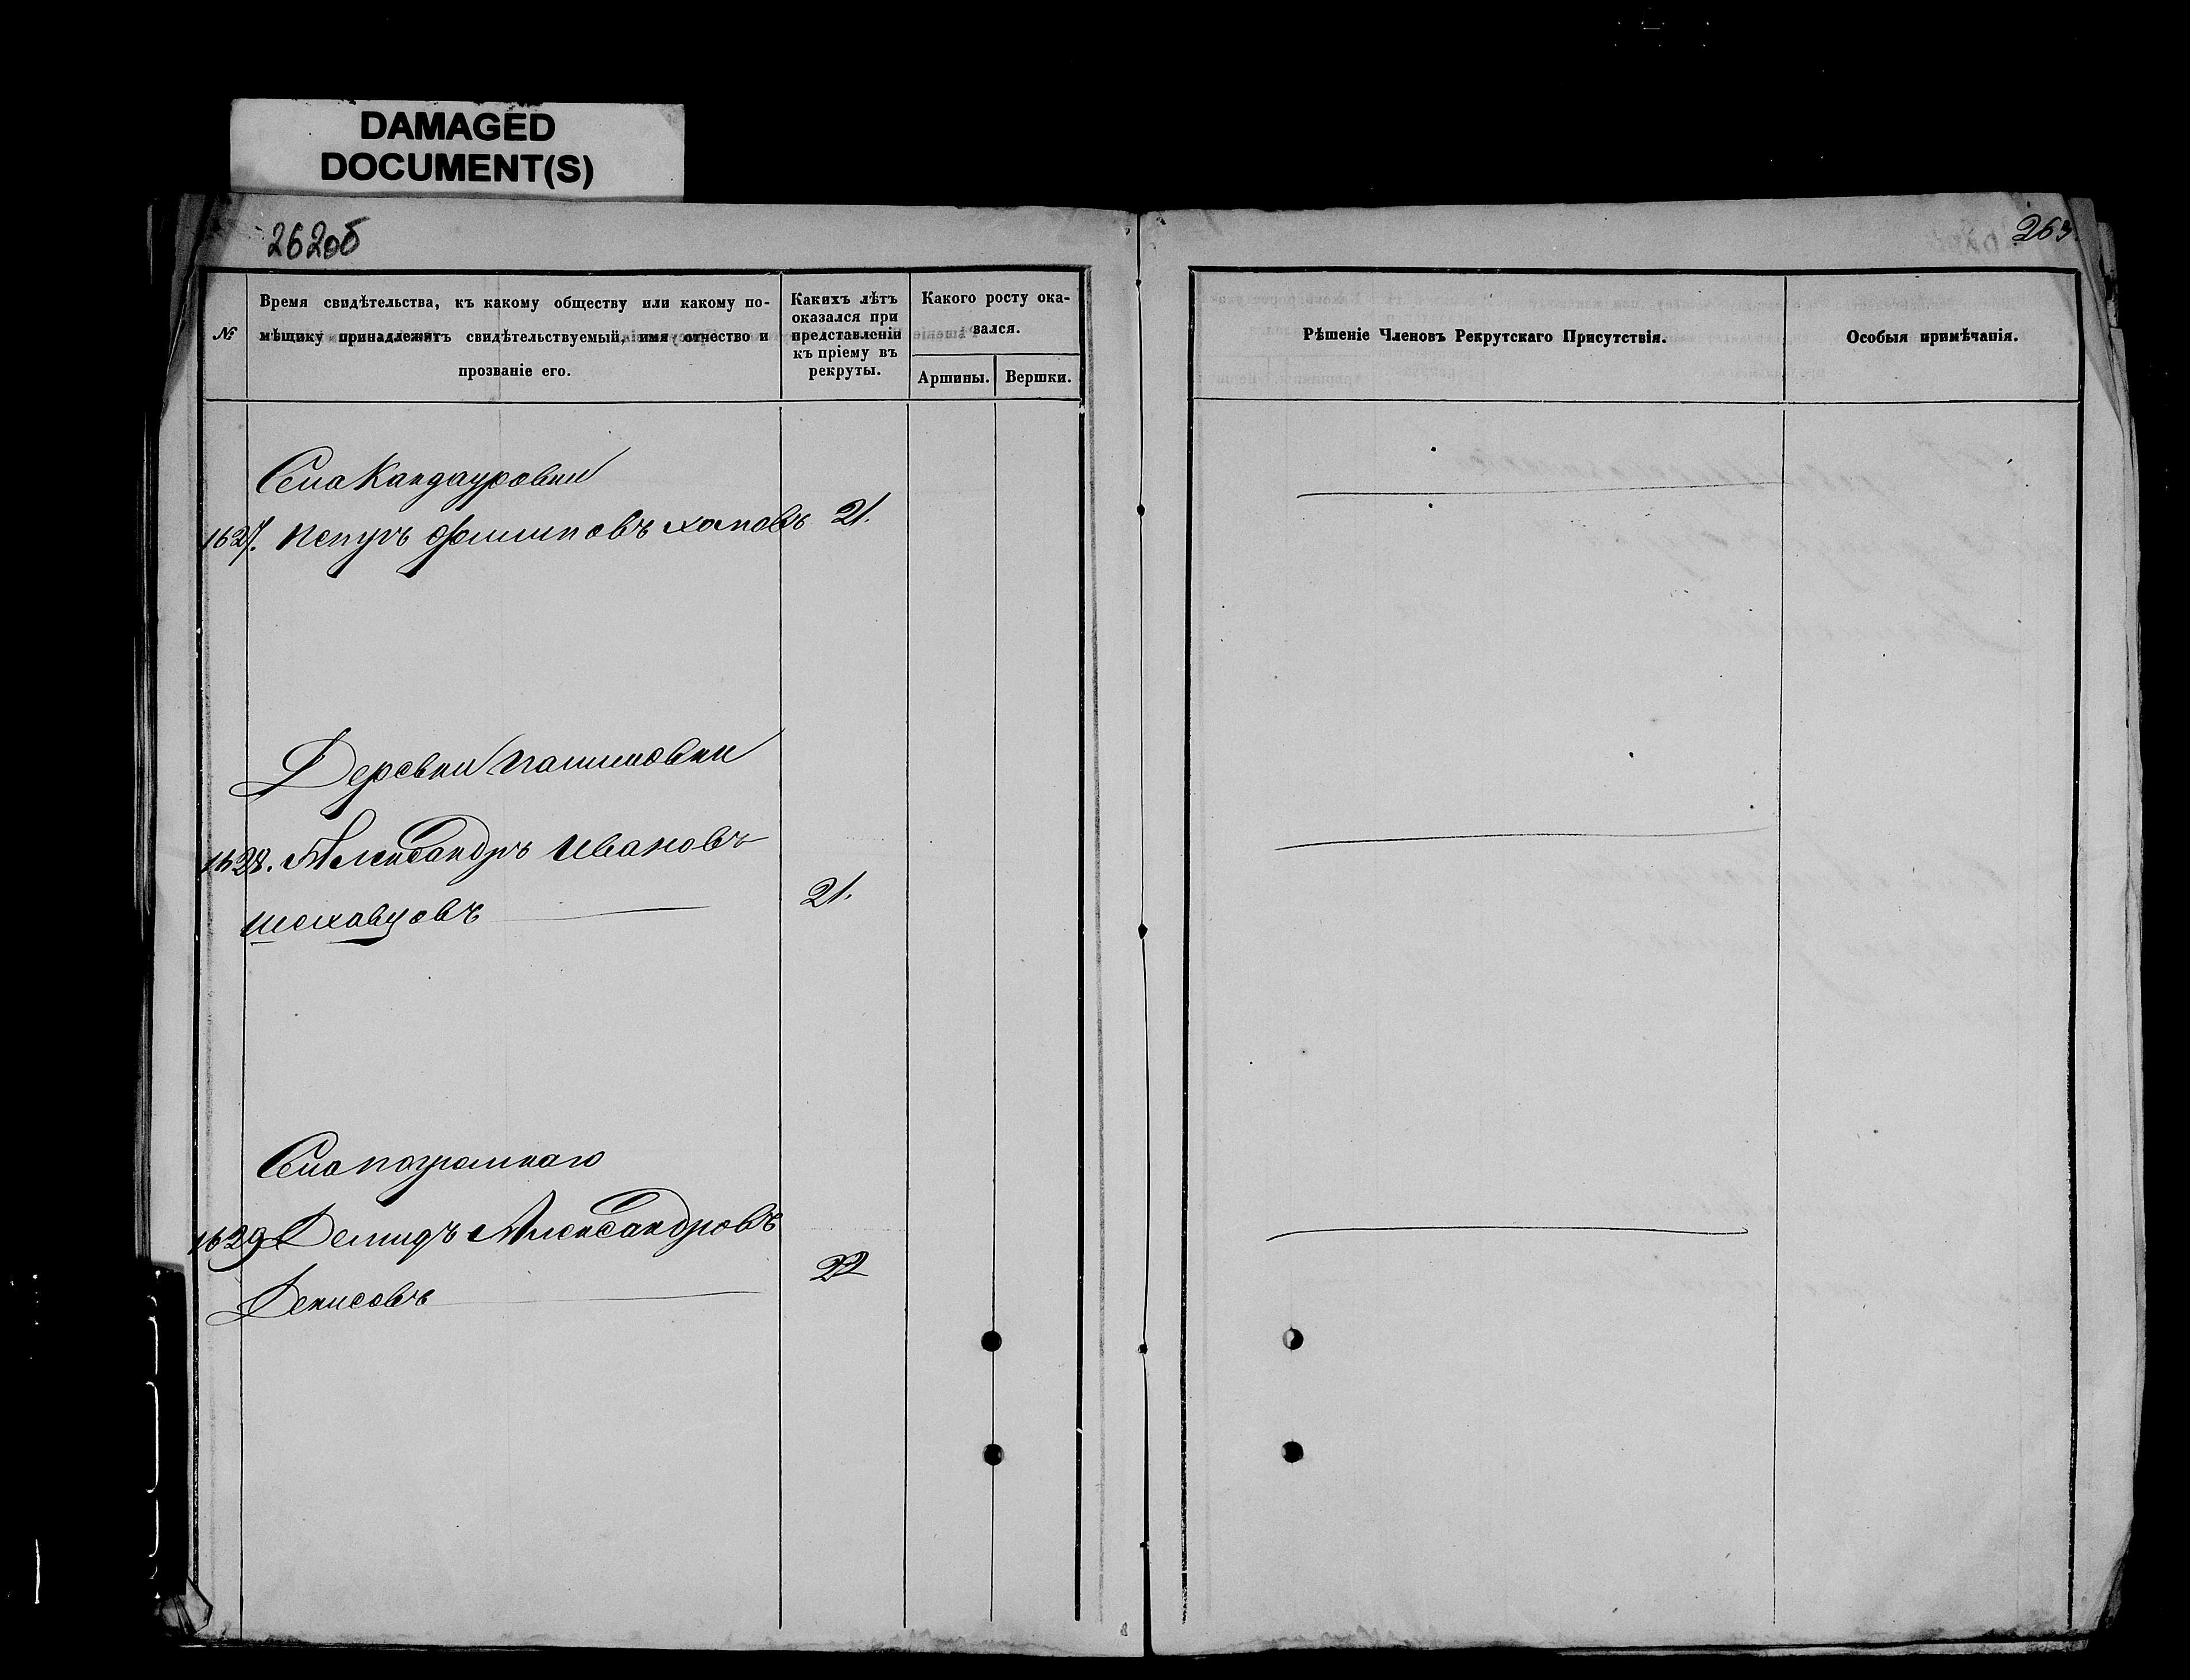 DAMAGED
DOCUMENT(S)
262об
263.
№
Время свидѣтельства, къ какому обществу или какому по-
мѣщику принадлежитъ свидѣтельствуемый, имя отчество и
прозваніе его.
Какихъ лѣтъ
оказался при
представленіи
къ пріему въ
рекруты.
Какого росту ока-
вался.
Аршины.
Вершки.
Рѣшеніе Членовъ Рекрутскаго Присутствія.
Особыя примѣчанія.
Села Кандауровки
1627. Петръ Филиповъ 21.
Деревни
1628. Александръ Ивановъ
21.
Села
1629 Демидъ Александровъ
22
Денисовъ